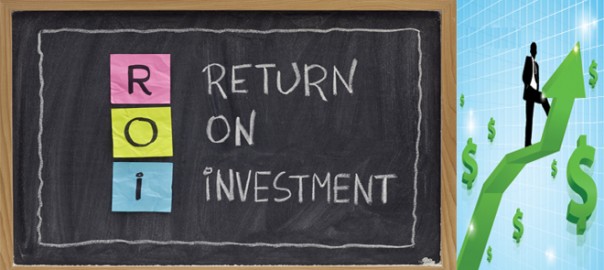 R RETURN
O ON
i iNVESTMENT
$
$
$
$
$
$
$